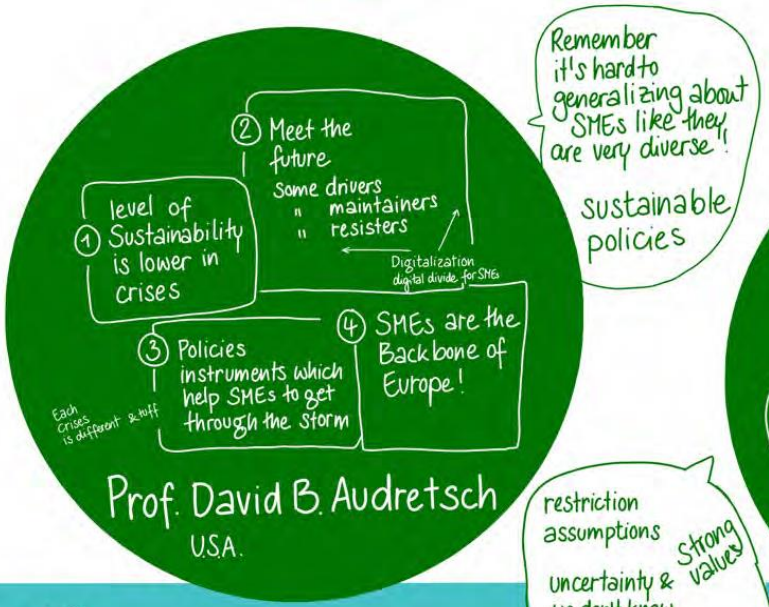 ① level of
Sustainability
is lower in
crises
② Meet the
future
Some drivers
" maintainers
" resisters
Digitalization
digital divide for SMEs
③ Policies
instruments which
help SMEs to get
through the storm
Each
crises
is different & tuff
④ SMEs are the
Backbone of
Europe!
Prof. David B. Audretsch
U.S.A.
Remember
it's hard to
generalizing about
SMEs like they
are very diverse!
sustainable
policies
restriction
assumptions
Strong
values
uncertainty &